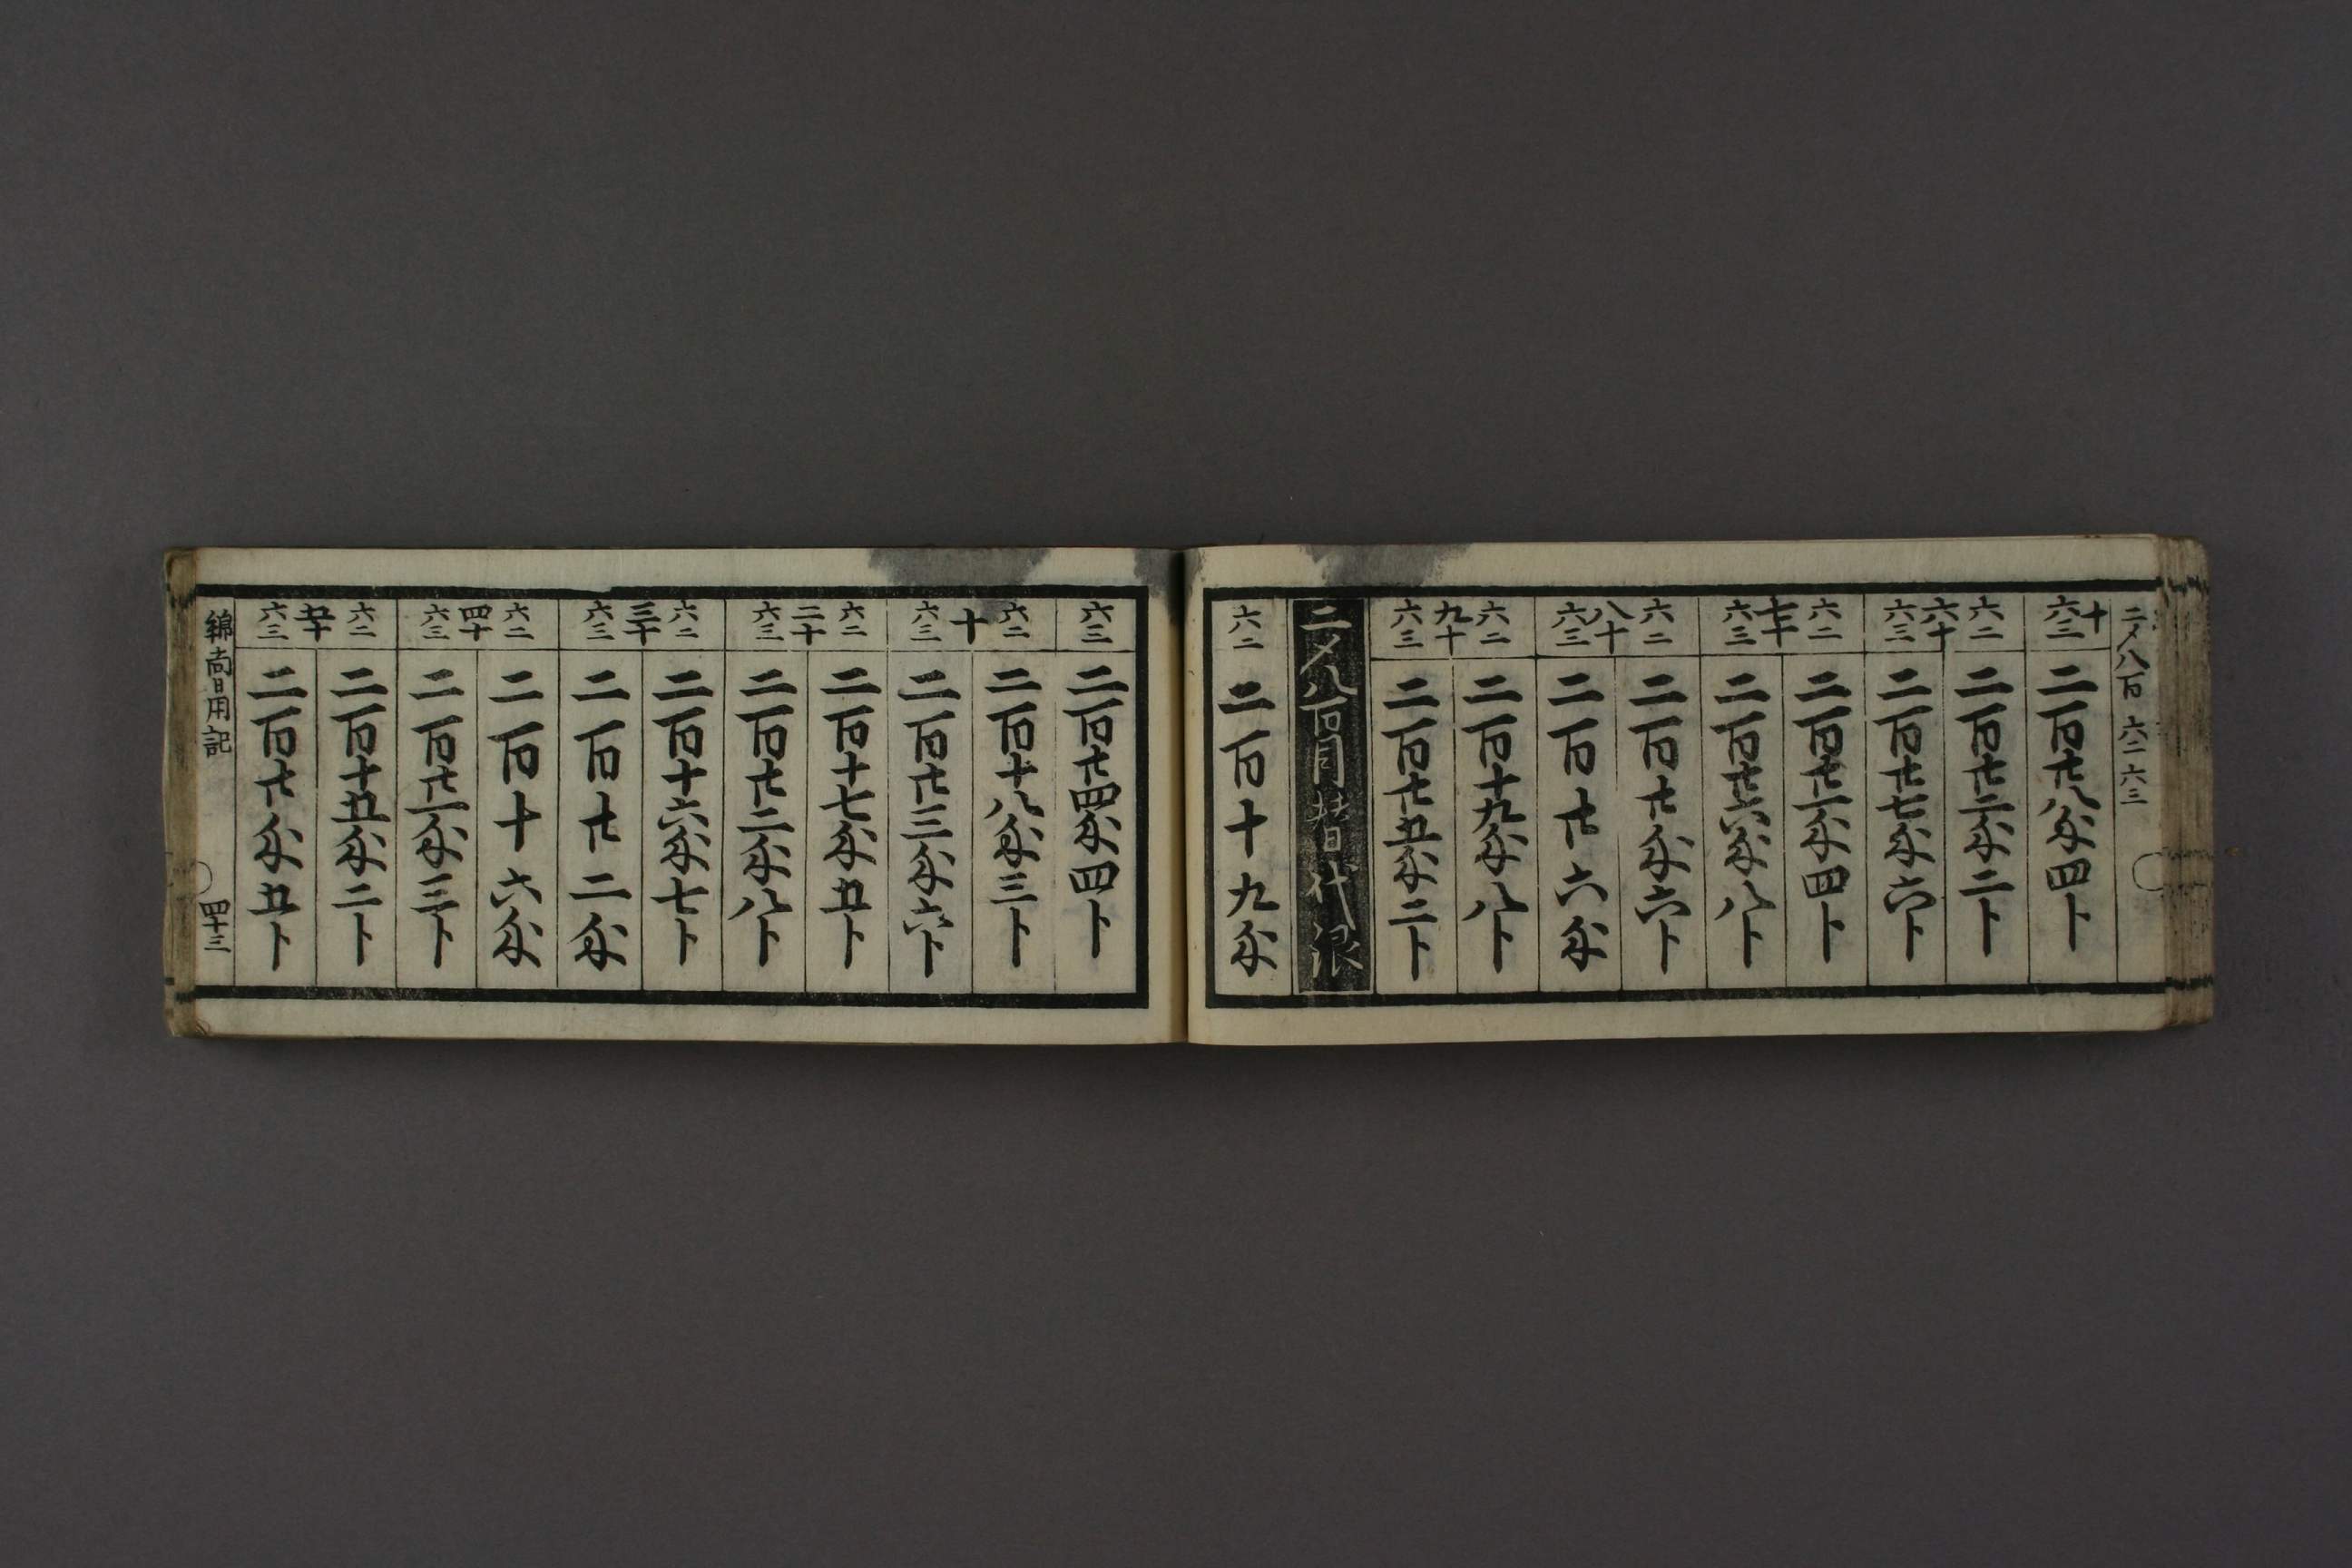 二〆八百 六二 六三
十 六三 二百廿八匁四卜
六二 二百廿二匁二卜
六十
六三 二百廿七匁六卜
六二 二百廿一匁四卜
七十
六三 二百廿六匁八卜
六二 二百廿匁六卜
八十
六三 二百廿六匁
六二 二百十九匁八卜
九十
六三 二百廿五匁二卜
二〆八百目替代銀
六二 二百十九匁
六三 二百廿四匁四卜
六二 二百十八匁三卜
十
六三 二百廿三匁六卜
六二 二百十七匁五卜
二十
六三 二百廿二匁八卜
六二 二百十六匁七卜
三十
六三 二百廿二匁
六二 二百十六匁
四十
六三 二百廿一匁三卜
六二 二百十五匁二卜
五十
六三 二百廿匁五卜
綿商日用記 四十三